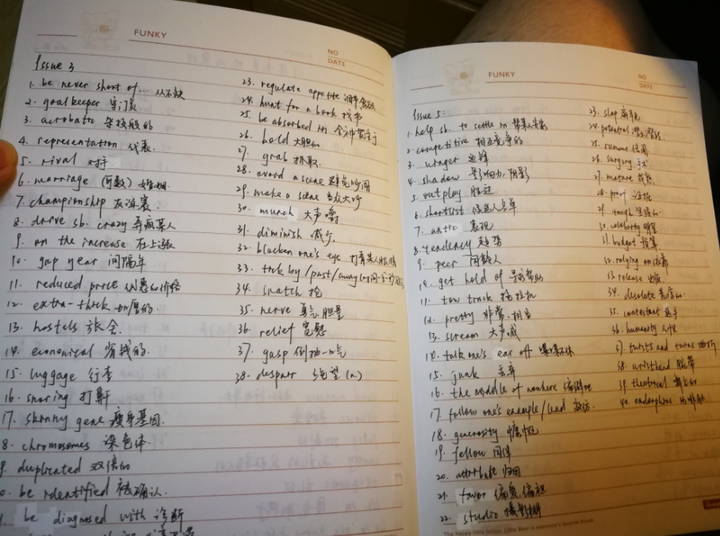 FUNKY
NO
DATE
Issue 3
1. be never short of... 从不缺
2. goalkeeper 守门员
3. acrobatic 杂技般的
4. representation 代表
5. rival 对手
6. marriage (可数) 婚姻
7. championship 友谊赛
8. drive sb. crazy 弄疯某人
9. on the increase 在上涨
10. gap year 间隔年
11. reduced price
12. extra-thick 加厚的
13. hostels 旅舍
14. economical 省钱的
15. luggage 行李
16. snoring 打鼾
17. skinny gene 瘦身基因
8. chromosomes 染色体
9. duplicated 双倍的
0. be identified 被确认
be diagnosed with 诊断
23. regulate appetite 调节食欲
24. hunt for a book 找书
25. be absorbed in 全神贯注于
26. bold 大胆的
27. grab 抓取
28. avoid a scene 避免吵闹
29. make a scene 当众大吵
30. munch 大声嚼
31. diminish 减少
32. blacken one's eye
33. tick by/past/away
34. snatch 抢
35. nerve 勇气 胆量
36. relief 宽慰
37. gasp 倒抽一口气
38. despair 绝望 (n.)
FUNKY
NO
DATE
Issue 5
1. help sb. to settle in
2. competitive 相互竞争的
3. winger 边锋
4. shadow 影响力, 阴影
5. outplay 胜过
6. shortlist 候选人名单
7. antic
8. tendency 趋势
9. peer 同龄人
10. get hold of 寻求帮助
11. tow truck 拖车机
12. pretty 非常, 相当
13. scream 大声喊
14. talk one's ear off 喋喋不休
15. junk
16. the middle of nowhere 偏僻地
17. follow one's example/lead 效仿
18. generosity 慷慨
19. fellow 同伴
20. attribute 归因
21. favor 偏爱 偏袒
22. studio 摄影棚
23. slap 扇耳光
24. potential 潜在 潜能
25. rumour 传闻
26. surgery 手术
27. mature 成熟
28. proof 证据
29. tough
30. celebrity 明星
31. budget 预算
32. relying on 依靠
33. release 出版
34. desolate 荒凉的
35. contestant 选手
36. humanity 人性
37. twists and turns 曲折
38. wristband 腕带
39. theatrical
40. endorphins